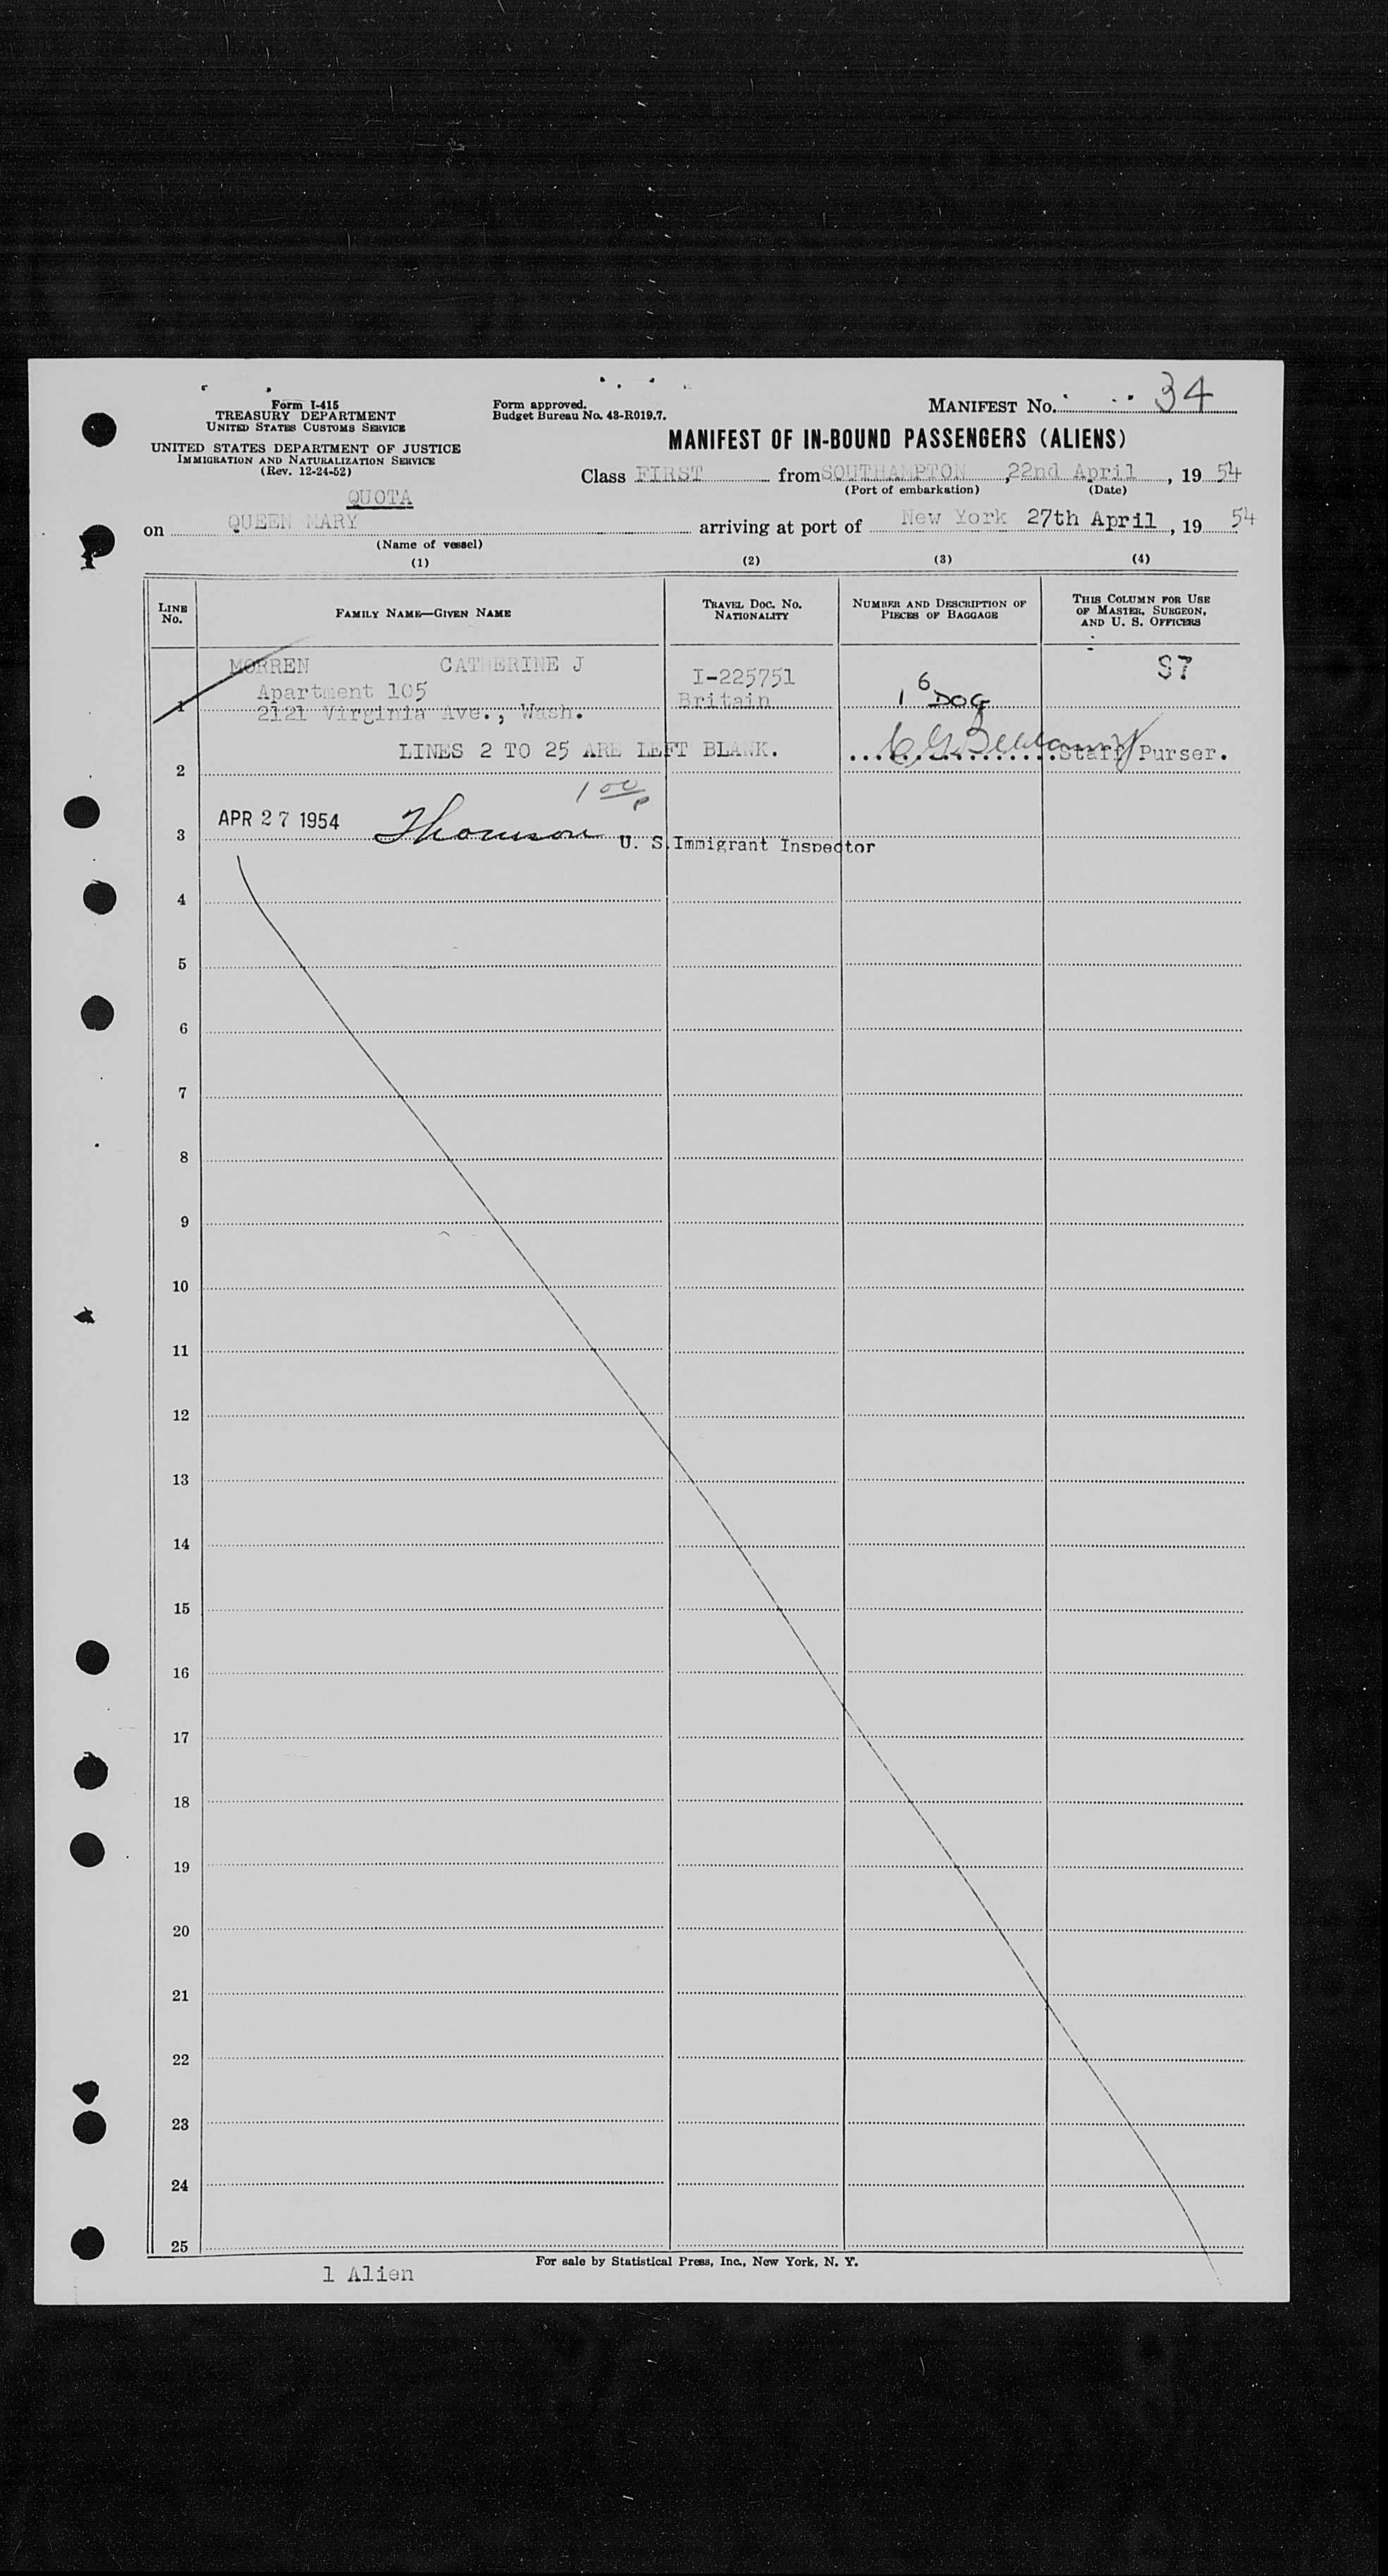 Form I-415
TREASURY DEPARTMENT
UNITED STATES CUSTOMS SERVICE
UNITED STATES DEPARTMENT OF JUSTICE
IMMIGRATION AND NATURALIZATION SERVICE
(Rev. 12-24-52)
Form approved.
Budget Bureau No. 43-R019.7.
MANIFEST No. 34
MANIFEST OF IN-BOUND PASSENGERS (ALIENS)
Class FIRST from SOUTHAMPTON, 22nd April, 19 54
(Port of embarkation) (Date)
QUOTA
on QUEEN MARY arriving at port of New York 27th April, 19 54
(Name of vessel)
(1) (2) (3) (4)
LINE No. FAMILY NAME—GIVEN NAME TRAVEL DOC. No. NATIONALITY NUMBER AND DESCRIPTION OF PIECES OF BAGGAGE THIS COLUMN FOR USE OF MASTER, SURGEON, AND U. S. OFFICERS
MORREN CATHERINE J I-225751 S7
Apartment 105 6
1 2121 Virginia Ave., Wash. Britain 1 DOG
LINES 2 TO 25 ARE LEFT BLANK. Staff Purser.
2
1 00
APR 27 1954 Thomson
3 U. S. Immigrant Inspector
4
5
6
7
8
9
10
11
12
13
14
15
16
17
18
19
20
21
22
23
24
25
For sale by Statistical Press, Inc., New York, N. Y.
1 Alien